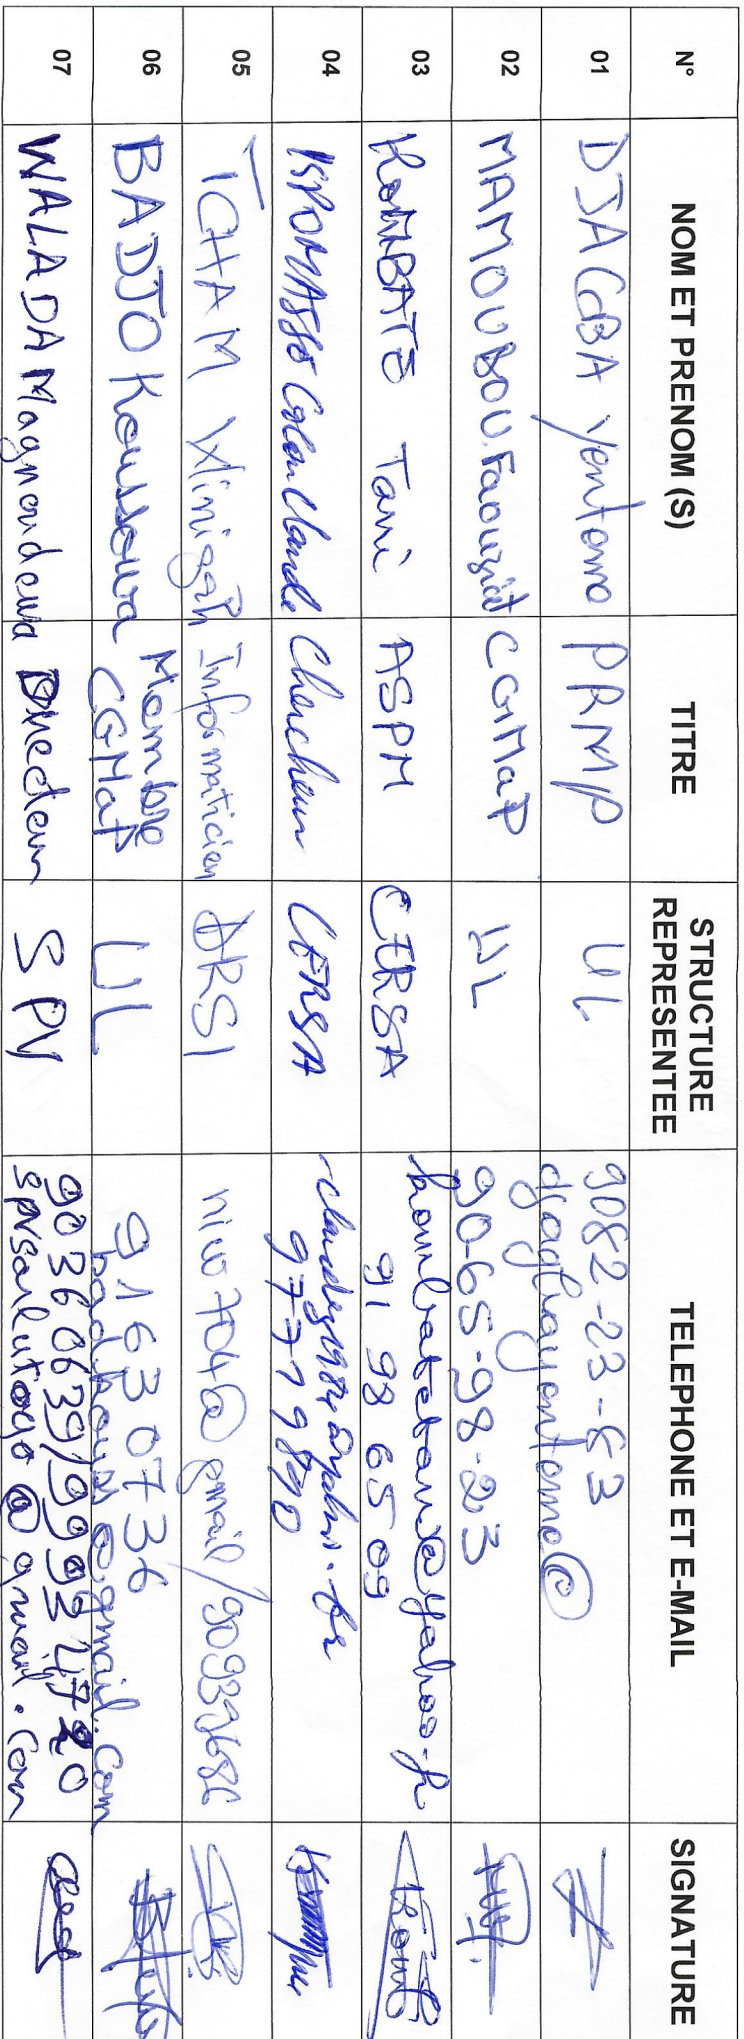 N° NOM ET PRENOM (S) TITRE STRUCTURE REPRESENTEE TELEPHONE ET E-MAIL SIGNATURE
01 DJAGBA Yentome PRMP UL 9082-23-83
02 MAMOUBOU Faouziat CGMaP UL 90-65-98-23
03 KOMBATE Tani ASPM CERSA kombatetani@yahoo.fr
91 98 65 09
04 KPOMASSE Colan Claude Chercheur CERSA
97 77 98 90
05 TCHAM Winigah Informaticien DRSI niw704@gmail/90939686
06 BADJO Koussouwa Membre CGMaP UL 91630736
@gmail.com
07 WALADA Magnoudewa Directeur SPV 90360639/99934720
spvsarlutogo@gmail.com